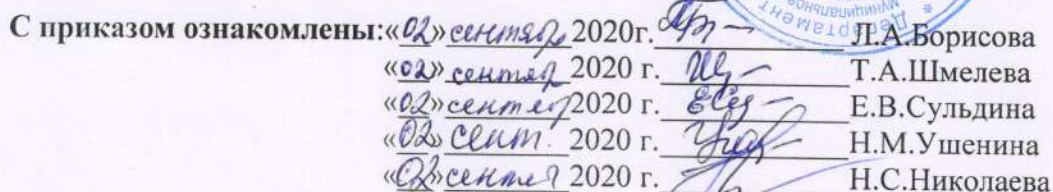 С приказом ознакомлены:«02» сентябр 2020г. Л.А.Борисова
«02» сентяб 2020 г. Т.А.Шмелева
«02» сентяб 2020 г. Е.В.Сульдина
«02» сент. 2020 г. Н.М.Ушенина
«02» сентяб 2020 г. Н.С.Николаева
Департамент
муниципальн